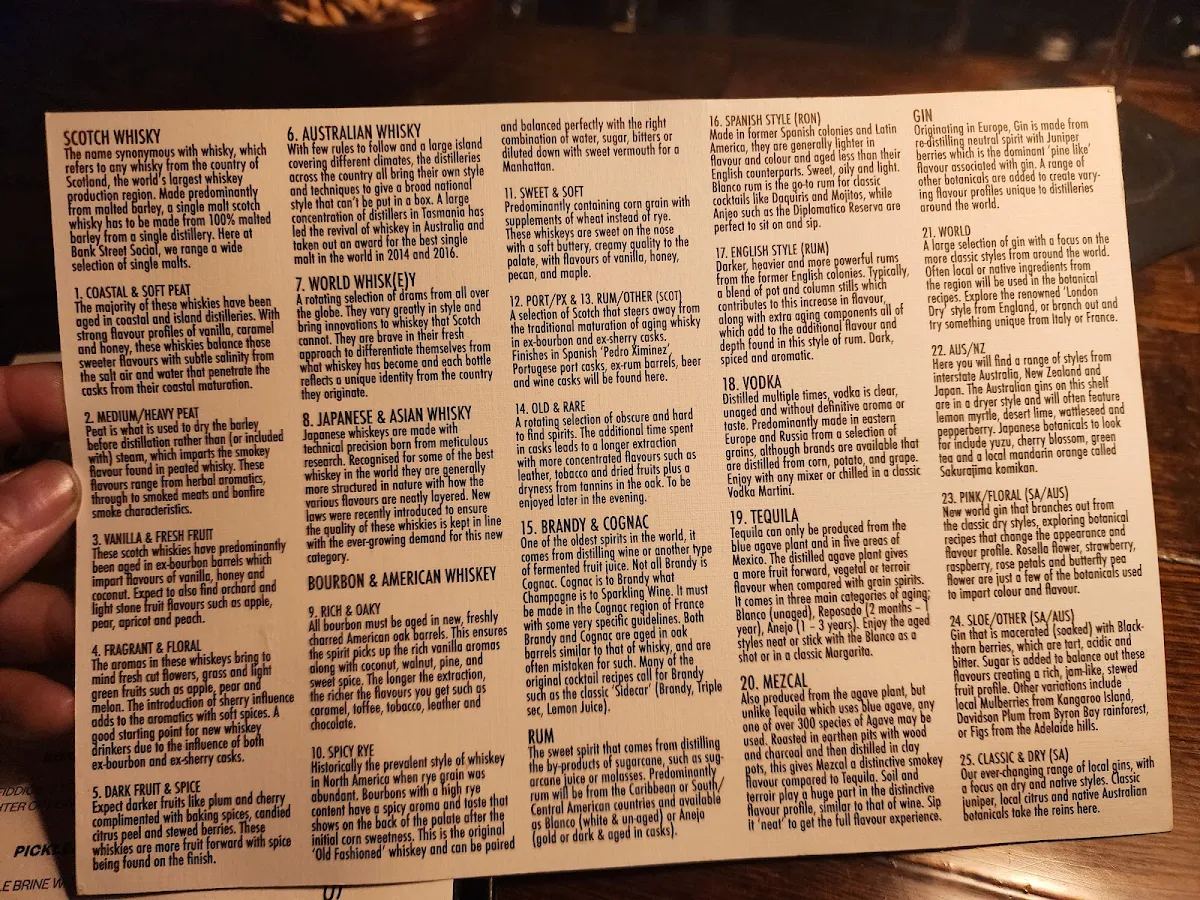 SCOTCH WHISKY
The name synonymous with whisky, which
refers to any whisky from the country of
Scotland, the world's largest whiskey
production region. Made predominantly
from malted barley, a single malt scotch
whisky has to be made from 100% malted
barley from a single distillery. Here at
Bank Street Social, we range a wide
selection of single malts.
1. COASTAL & SOFT PEAT
The majority of these whiskies have been
aged in coastal and island distilleries. With
strong flavour profiles of vanilla, caramel
and honey, these whiskies balance those
sweeter flavours with subtle salinity from
the salt air and water that penetrate the
casks from their coastal maturation.
2. MEDIUM/HEAVY PEAT
Peat is what is used to dry the barley
before distillation rather than (or included
with) steam, which imparts the smokey
flavour found in peated whisky. These
flavours range from herbal aromatics,
through to smoked meats and bonfire
smoke characteristics.
3. VANILLA & FRESH FRUIT
These scotch whiskies have predominantly
been aged in ex-bourbon barrels which
impart flavours of vanilla, honey and
coconut. Expect to also find orchard and
light stone fruit flavours such as apple,
pear, apricot and peach.
4. FRAGRANT & FLORAL
The aromas in these whiskeys bring to
mind fresh cut flowers, grass and light
green fruits such as apple, pear and
melon. The introduction of sherry influence
adds to the aromatics with soft spices. A
good starting point for new whiskey
drinkers due to the influence of both
ex-bourbon and ex-sherry casks.
5. DARK FRUIT & SPICE
Expect darker fruits like plum and cherry
complimented with baking spices, candied
citrus peel and stewed berries. These
whiskies are more fruit forward with spice
being found on the finish.
6. AUSTRALIAN WHISKY
With few rules to follow and a large island
covering different climates, the distilleries
across the country all bring their own style
and techniques to give a broad national
style that can't be put in a box. A large
concentration of distillers in Tasmania has
led the revival of whiskey in Australia and
taken out an award for the best single
malt in the world in 2014 and 2016.
7. WORLD WHISK(E)Y
A rotating selection of drams from all over
the globe. They vary greatly in style and
bring innovations to whiskey that Scotch
cannot. They are brave in their fresh
approach to differentiate themselves from
what whiskey has become and each bottle
reflects a unique identity from the country
they originate.
8. JAPANESE & ASIAN WHISKY
Japanese whiskeys are made with
technical precision born from meticulous
research. Recognised for some of the best
whiskey in the world they are generally
more structured in nature with how the
various flavours are neatly layered. New
laws were recently introduced to ensure
the quality of these whiskies is kept in line
with the ever-growing demand for this new
category.
BOURBON & AMERICAN WHISKEY
9. RICH & OAKY
All bourbon must be aged in new, freshly
charred American oak barrels. This ensures
the spirit picks up the rich vanilla aromas
along with coconut, walnut, pine, and
sweet spice. The longer the extraction,
the richer the flavours you get such as
caramel, toffee, tobacco, leather and
chocolate.
10. SPICY RYE
Historically the prevalent style of whiskey
in North America when rye grain was
abundant. Bourbons with a high rye
content have a spicy aroma and taste that
shows on the back of the palate after the
initial corn sweetness. This is the original
'Old Fashioned' whiskey and can be paired
and balanced perfectly with the right
combination of water, sugar, bitters or
diluted down with sweet vermouth for a
Manhattan.
11. SWEET & SOFT
Predominantly containing corn grain with
supplements of wheat instead of rye.
These whiskeys are sweet on the nose
with a soft buttery, creamy quality to the
palate, with flavours of vanilla, honey,
pecan, and maple.
12. PORT/PX & 13. RUM/OTHER (SCOT)
A selection of Scotch that steers away from
the traditional maturation of aging whisky
in ex-bourbon and ex-sherry casks.
Finishes in Spanish 'Pedro Ximinez',
Portugese port casks, ex-rum barrels, beer
and wine casks will be found here.
14. OLD & RARE
A rotating selection of obscure and hard
to find spirits. The additional time spent
in casks leads to a longer extraction
with more concentrated flavours such as
leather, tobacco and dried fruits plus a
dryness from tannins in the oak. To be
enjoyed later in the evening.
15. BRANDY & COGNAC
One of the oldest spirits in the world, it
comes from distilling wine or another type
of fermented fruit juice. Not all Brandy is
Cognac. Cognac is to Brandy what
Champagne is to Sparkling Wine. It must
be made in the Cognac region of France
with some very specific guidelines. Both
Brandy and Cognac are aged in oak
barrels similar to that of whisky, and are
often mistaken for such. Many of the
original cocktail recipes call for Brandy
such as the classic 'Sidecar' (Brandy, Triple
sec, Lemon Juice).
RUM
The sweet spirit that comes from distilling
the by-products of sugarcane, such as sug-
arcane juice or molasses. Predominantly
rum will be from the Caribbean or South/
Central American countries and available
as Blanco (white & un-aged) or Anejo
(gold or dark & aged in casks).
16. SPANISH STYLE (RON)
Made in former Spanish colonies and Latin
America, they are generally lighter in
flavour and colour and aged less than their
English counterparts. Sweet, oily and light.
Blanco rum is the go-to rum for classic
cocktails like Daquiris and Mojitos, while
Anjeo such as the Diplomatico Reserva are
perfect to sit on and sip.
17. ENGLISH STYLE (RUM)
Darker, heavier and more powerful rums
from the former English colonies. Typically,
a blend of pot and column stills which
contributes to this increase in flavour,
along with extra aging components all of
which add to the additional flavour and
depth found in this style of rum. Dark,
spiced and aromatic.
18. VODKA
Distilled multiple times, vodka is clear,
unaged and without definitive aroma or
taste. Predominantly made in eastern
Europe and Russia from a selection of
grains, although brands are available that
are distilled from corn, potato, and grape.
Enjoy with any mixer or chilled in a classic
Vodka Martini.
19. TEQUILA
Tequila can only be produced from the
blue agave plant and in five areas of
Mexico. The distilled agave plant gives
a more fruit forward, vegetal or terroir
flavour when compared with grain spirits.
It comes in three main categories of aging;
Blanco (unaged), Reposado (2 months – 1
year), Anejo (1 – 3 years). Enjoy the aged
styles neat or stick with the Blanco as a
shot or in a classic Margarita.
20. MEZCAL
Also produced from the agave plant, but
unlike Tequila which uses blue agave, any
one of over 300 species of Agave may be
used. Roasted in earthen pits with wood
and charcoal and then distilled in clay
pots, this gives Mezcal a distinctive smokey
flavour compared to Tequila. Soil and
terroir play a huge part in the distinctive
flavour profile, similar to that of wine. Sip
it 'neat' to get the full flavour experience.
GIN
Originating in Europe, Gin is made from
re-distilling neutral spirit with Juniper
berries which is the dominant 'pine like'
flavour associated with gin. A range of
other botanicals are added to create vary-
ing flavour profiles unique to distilleries
around the world.
21. WORLD
A large selection of gin with a focus on the
more classic styles from around the world.
Often local or native ingredients from
the region will be used in the botanical
recipes. Explore the renowned 'London
Dry' style from England, or branch out and
try something unique from Italy or France.
22. AUS/NZ
Here you will find a range of styles from
interstate Australia, New Zealand and
Japan. The Australian gins on this shelf
are in a dryer style and will often feature
lemon myrtle, desert lime, wattleseed and
pepperberry. Japanese botanicals to look
for include yuzu, cherry blossom, green
tea and a local mandarin orange called
Sakurajima komikan.
23. PINK/FLORAL (SA/AUS)
New world gin that branches out from
the classic dry styles, exploring botanical
recipes that change the appearance and
flavour profile. Rosella flower, strawberry,
raspberry, rose petals and butterfly pea
flower are just a few of the botanicals used
to impart colour and flavour.
24. SLOE/OTHER (SA/AUS)
Gin that is macerated (soaked) with Black-
thorn berries, which are tart, acidic and
bitter. Sugar is added to balance out these
flavours creating a rich, jam-like, stewed
fruit profile. Other variations include
local Mulberries from Kangaroo Island,
Davidson Plum from Byron Bay rainforest,
or Figs from the Adelaide hills.
25. CLASSIC & DRY (SA)
Our ever-changing range of local gins, with
a focus on dry and native styles. Classic
juniper, local citrus and native Australian
botanicals take the reins here.
PICKL
LE BRINE W